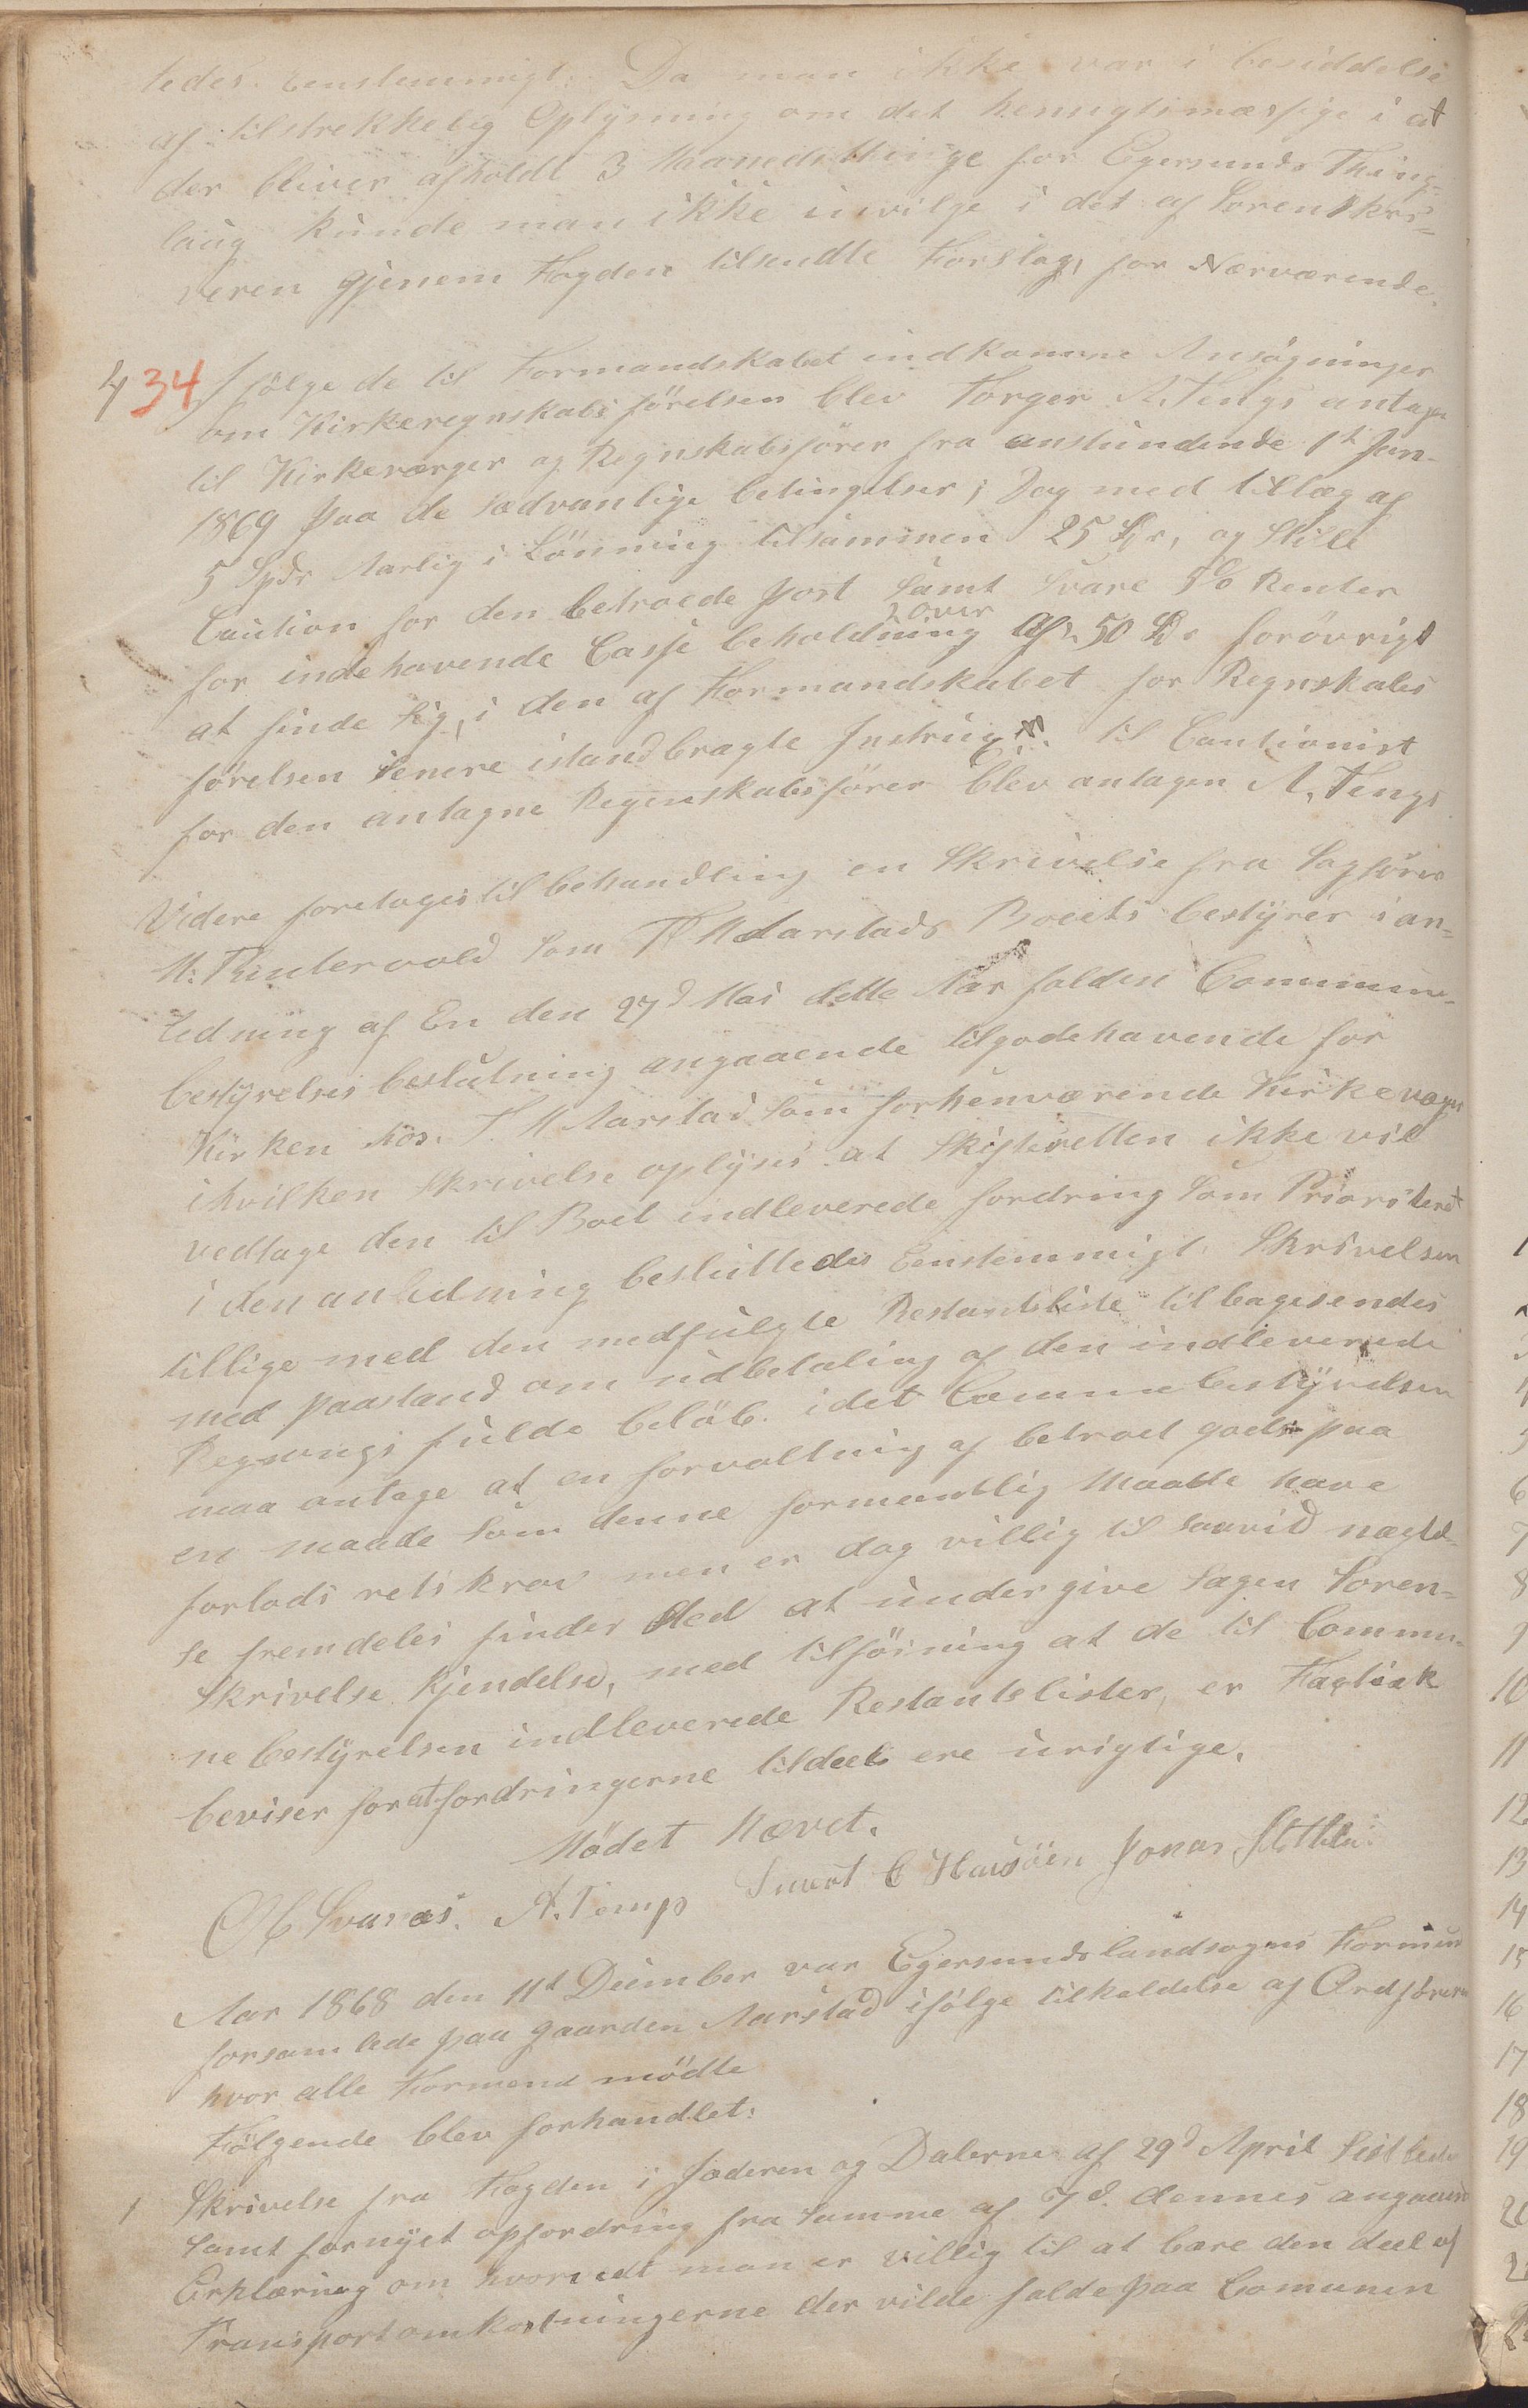 ledes Eenstemmigt: Da man ikke var i besiddelse
af tilstrekkelig Oplysning om det hensigtsmæssige i at
der bliver afholdt 3 Maanedsthinge for Egersunds Thing-
laug kunde man ikke inwilge i det af Sorenskri-
veren gjenem Fogden tilsendte Forslag, for Nærværende.
4 34 Ifølge de til Formandskabet indkomne Ansøgninger
om Kirkeregnskabsførelsen blev Torger A. Tengs antagen
til Kirkeværger og Regnskabsfører fra anstundende 1st Jan-
1869 paa de sædvanlige betingelser; Dog med tillæg af
5 Spdr Aarlig i Lønning tilsammen 25 Spdr, og stille
Caution for den betroede post samt svare 5% Renter
for indehavende Casse beholdning over af 50 Spd. forøvrigt
at finde sig, i den af Formandskabet for Regnskabs
førelsen senere istandbragte Instrux. til Cautionist
for den antagne Regnskabsfører blev antagen A. Tengs
Videre foretoges til behandling en Skrivelse fra Sagfører
M. Puntervold som T. M Aarstads Boeets bestyrer i an-
ledning af En den 27d Mai dette Aar falden Commune-
bestyrelses beslutning angaaende tilgodehavende for
Kirken hos. T. M Aarstad som forhenværende Kirkeværger
ihvilken skrivelse oplyses at Skifteretten ikke vil
vedtage den til Boet indleverede fordring som Prioriteret
i den anledning besluttedes Eenstemmigt: Skrivelsen
tillige med den medfulgte Restantsliste tilbagesendes
med paastand om udbetaling af den indleverede
Regnings fulde beløb. idet Commune bestyrelsen
maa antage at en forvaltning af betroet gods paa
en maade som denne formentlig maatte have
forlods rets krav men er dog villig til saavid nægtel-
se fremdeles finder sted at undergive Sagen Soren-
skrivelse Kjendelse, med tilføining at de til Commu-
ne bestyrelsen indleverede Restantslister, er Factisk
beviser for at fordringerne tildeels ere urigtige.
Mødet Hævet.
A. Tengs Sivert C Havsøen Jonas
Aar 1868 den 11t December var Egersunds landsogns Formænd
forsamlede paa gaarden Aarstad ifølge tilkaldelse af Ordføreren
hvor alle Formend mødte
Følgende blev forhandlet:
1 Skrivelse fra Fogden i Jæderen og Dalerne af 29d April sistleden
samt fornyet opfordring fra samme af 7d. dennes angaaende
Erklæring om hvorvidt man er villig til at bære den deel af
Transportomkostningerne der vilde falde paa Comunen